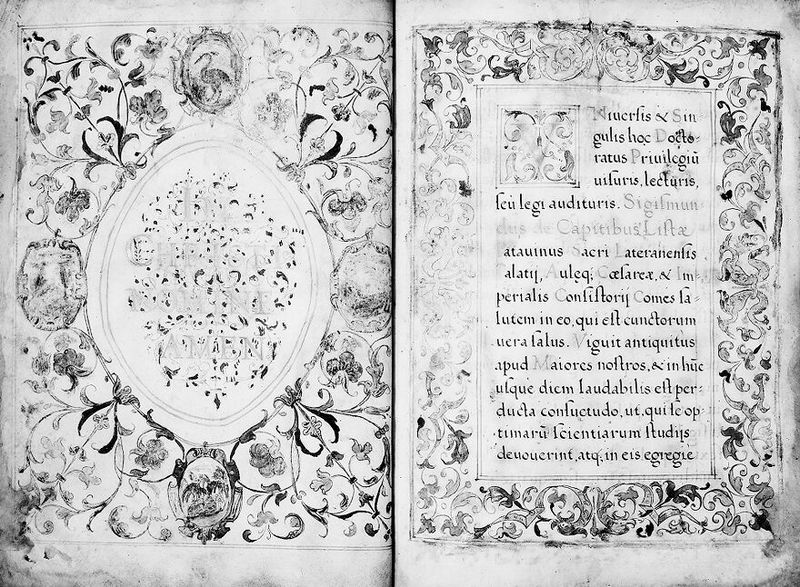 IN
CHRISTI
NOMINE
AMEN
Niuersis & Sin-
gulis hoc Docto-
ratus Priuilegiū
uisuris, lecturis,
seu legi audituris. Sigismun-
dus de Capitibus Listæ
Patauinus Sacri Lateranensis
Palatij, Auleq; Cæsareæ, & Im-
perialis Consistorij Comes sa-
lutem in eo, qui est cunctorum
uera salus. Viguit antiquitus
apud Maiores nostros, & in hūc
usque diem laudabilis est per-
ducta consuetudo, ut, qui se op-
timarū scientiarum studijs
deuouerint, atq; in eis egregie